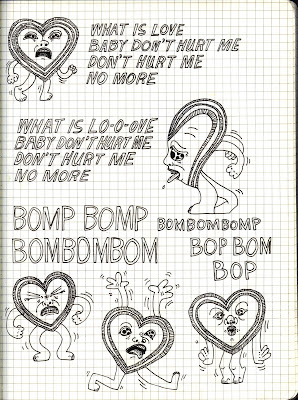 WHAT IS LOVE
BABY DON'T HURT ME
DON'T HURT ME
NO MORE
WHAT IS LO-O-OVE
BABY DON'T HURT ME
DON'T HURT ME
NO MORE
BOMP BOMP
BOMBOMBOM
BOMBOMBOMP
BOP BOM
BOP